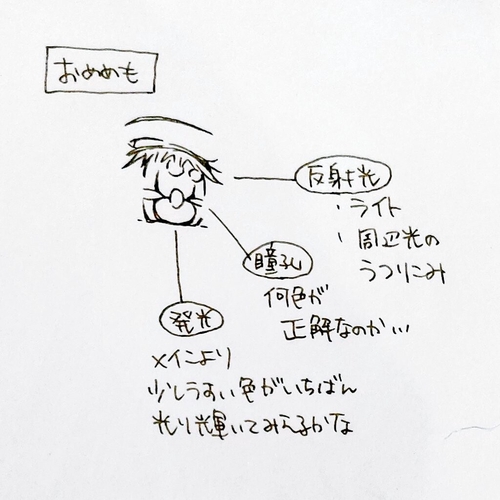 おめめも
反射光
・ライト
・周辺光の
うつりこみ
瞳孔
何色が
正解なのか…
発光
メインより
少しうすい色がいちばん
光り輝いてみえるかな